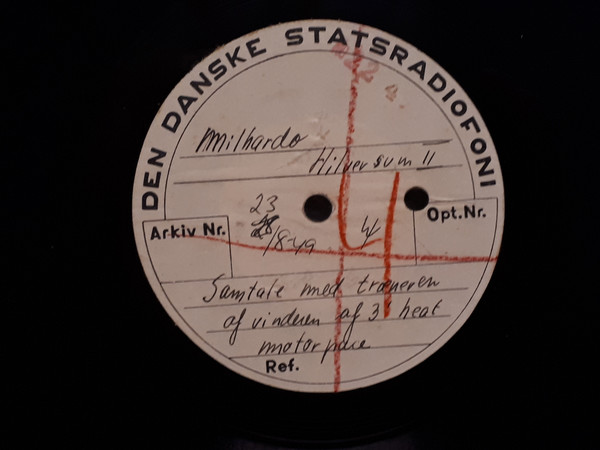 DEN DANSKE STATSRADIOFONI
Milhardo
Hilversum II
Arkiv Nr.
23
/8-49
4
Opt.Nr.
Samtale med træneren
af vinderen af 3' heat
motorpace
Ref.